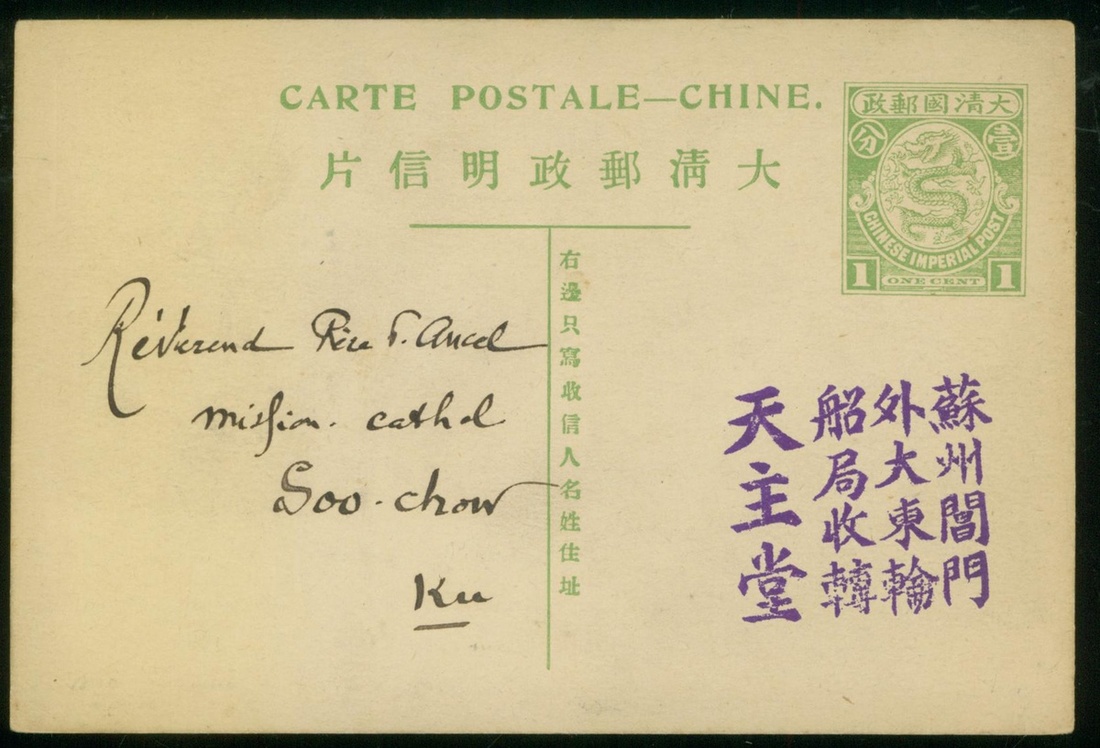 CARTE POSTALE—CHINE.
大清郵政明信片
大清國郵政
壹分
CHINESE IMPERIAL POST
1 ONE CENT 1
右邊只寫收信人名姓住址
Révérend Père P. Ancel
Mission. cathol
Soo-chow
Ku
蘇州閶門
外大東輪
船局收轉
天主堂